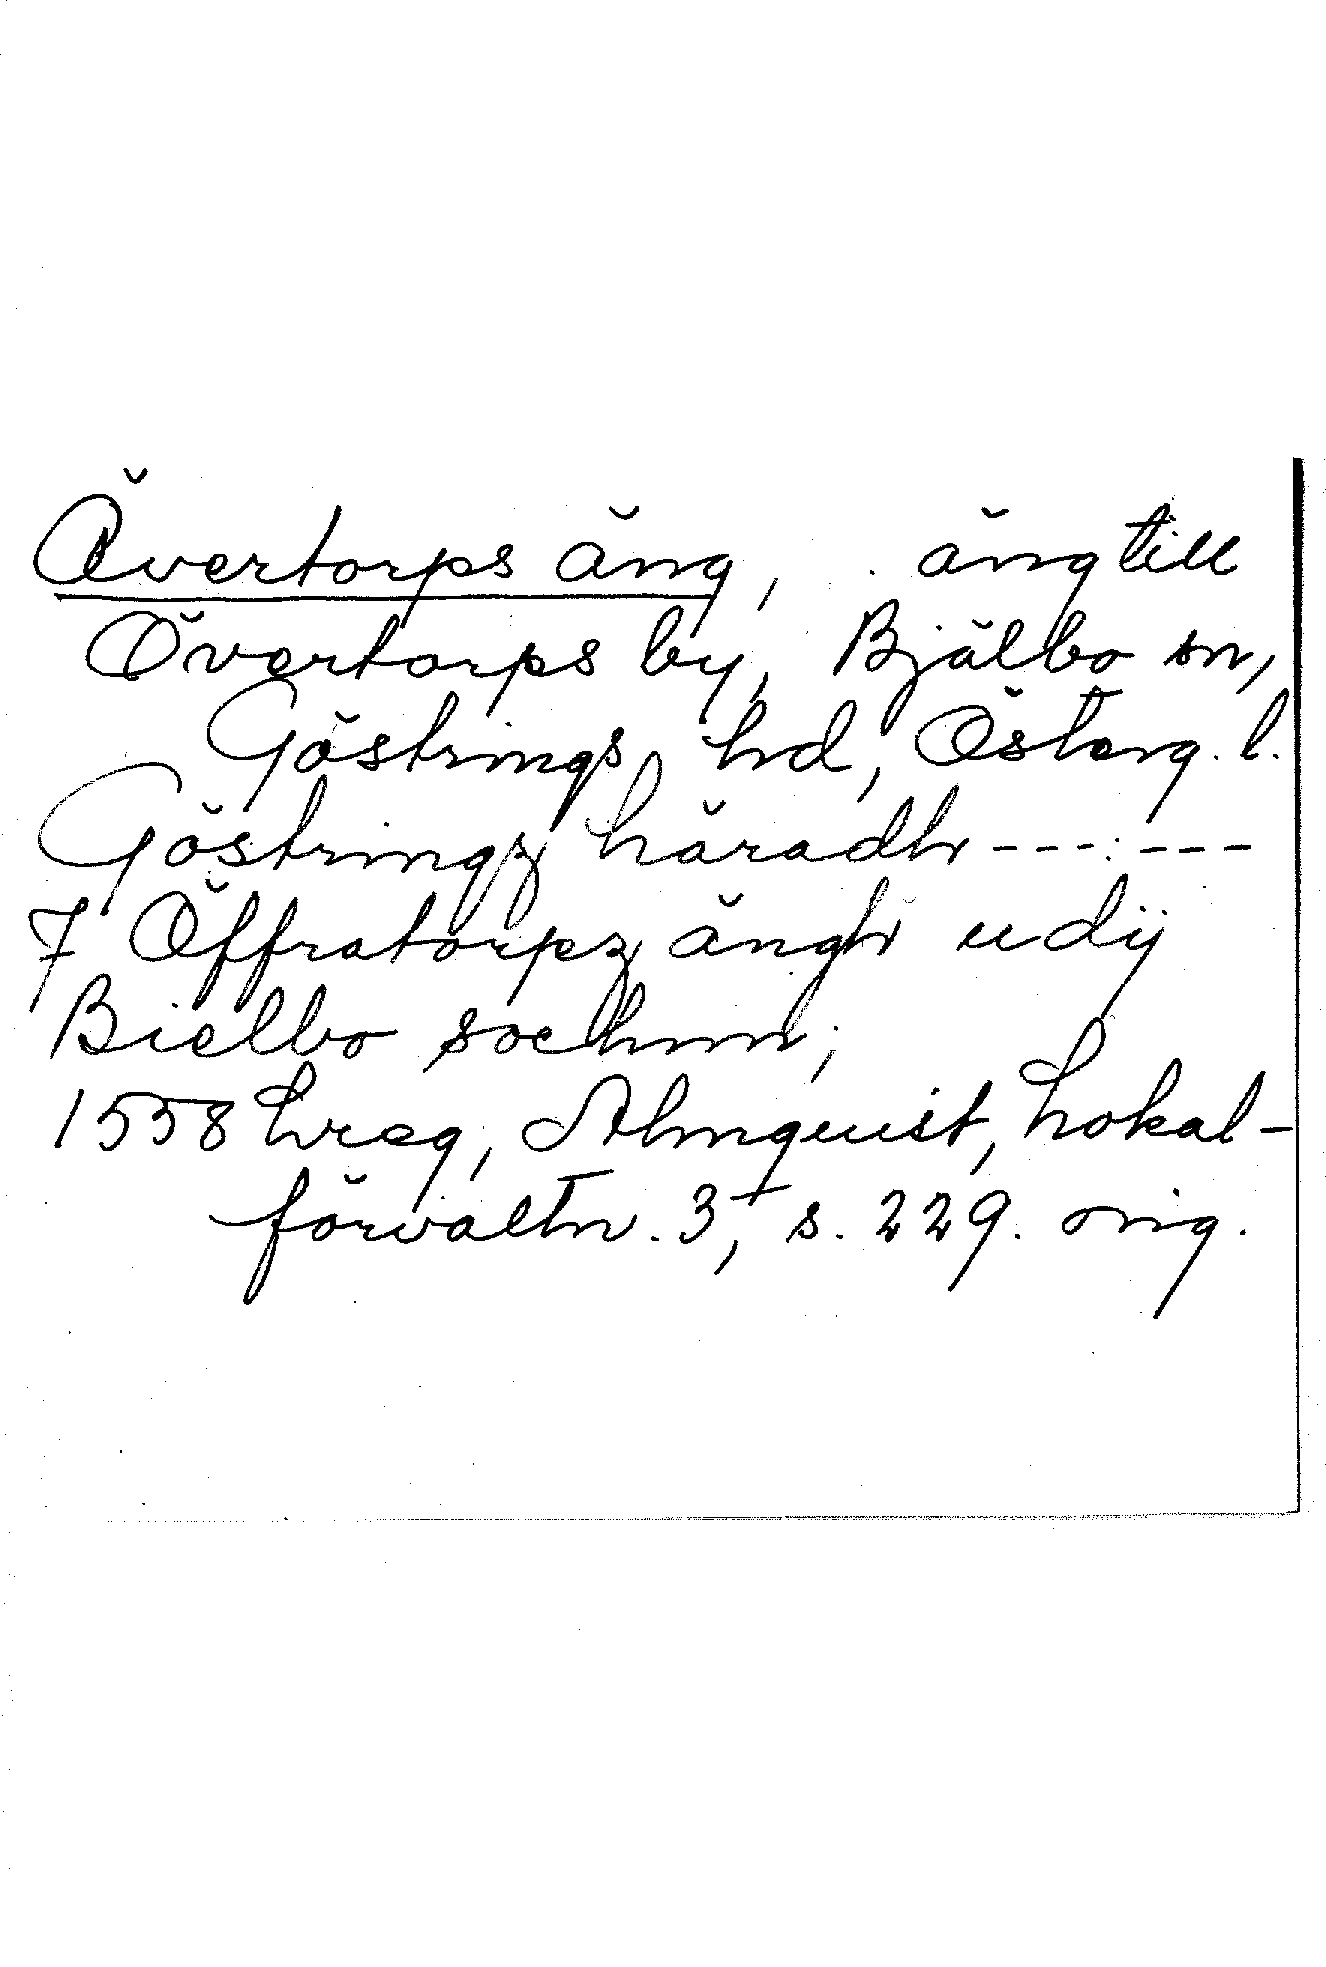 Övertorps äng, äng till
Övertorps by, Bjälbo sn,
Göstrings hd, Österg. l.
Göstringz häradh ------
7 Öffratorpz ängh udij
Bielbo sochnn;
1558 Lreg, Almquist, Lokal-
förvaltn. 3, s. 229. orig.